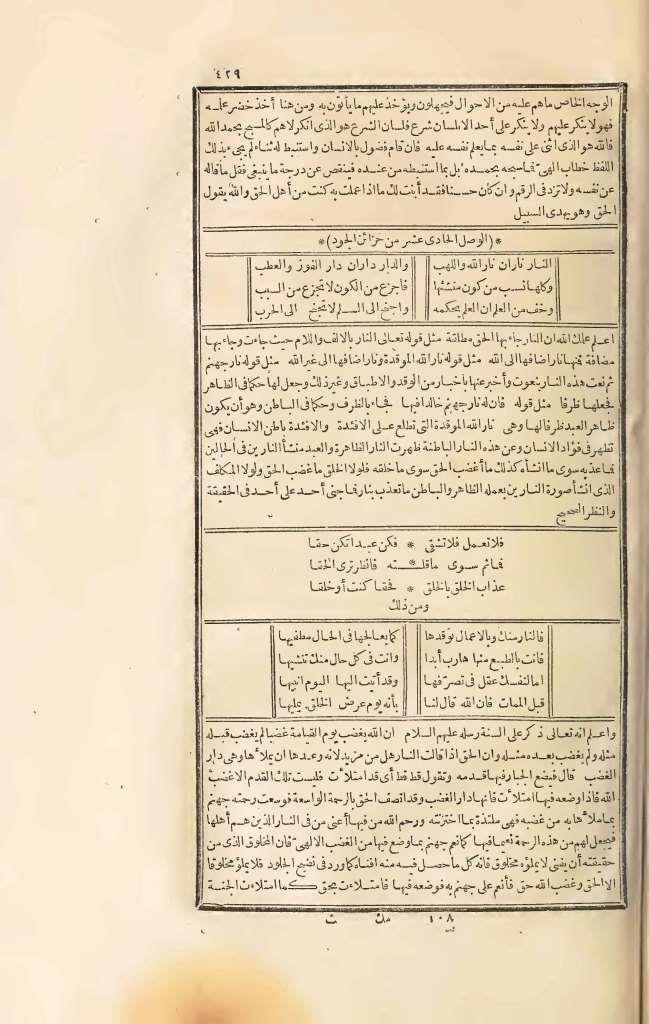 ٤٢٩
الوجه الخاص ما هم عليه من الاحوال فيجهلون ويؤخذ عليهم ما يأتون به ومن هنا أخذ خضر علمه
فهو لا ينكر عليهم ولا ينكر على أحد الا بلسان شرع فلسان الشرع هو الذى أنكر لا هم كالمسبح بحمد الله
فالله هو الذى اثنى على نفسه بما يعلم نفسه عليه فان قام فضول بالانسان واستنبط له ثناء لم يجئ بذلك
اللفظ خطاب الهىّ فما سبحه بحمده بل بما استنبطه من عنده فينقص عن درجة ما ينبغى فقل ما قاله
عن نفسه ولا تزد فى الرقم وان كان حسنا فقد أبنت لك ما اذا عملت به كنت من أهل الحق والله يقول
الحق وهو يهدى السبيل
*(الوصل الحادى عشر من خزائن الجود)*
النار ناران نار الله واللهب والدار داران دار الفوز والعطب
وكلها نسب من كون منشئها فاجزع من الكون لا تجزع من السبب
وخف من العلم ان العلم يحكمه واجنح الى السلم لا تجنح الى الحرب
اعلم علمك الله ان النار جاء بها الحق مطلقة مثل قوله تعالى النار بالالف واللام حيث جاءت وجاء بها
مضافة فمنها نار اضافها الى الله مثل قوله نار الله الموقدة ونار اضافها الى غير الله مثل قوله نار جهنم
ثم نعت هذه النار بنعوت وأخبر عنها باخبار من الوقد والاطباق وغير ذلك وجعل لها حكما فى الظاهر
فجعلها ظرفا مثل قوله فان له نار جهنم خالدا فيها فجاء بالظرف وحكما فى الباطن وهو أن يكون
ظاهر العبد ظرفا لها وهى نار الله الموقدة التى تطلع على الافئدة والافئدة باطن الانسان فهى
تظهر فى فؤاد الانسان وعن هذه النار الباطنة ظهرت النار الظاهرة والعبد منشأ النارين فى الحالين
فما عذبه سوى ما انشأه كذلك ما أغضب الحق سوى ما خلقه فلولا الخلق ما غضب الحق ولولا المكلف
الذى انشأ صورة النارين بعمله الظاهر والباطن ما تعذب بنار فما جنى أحد على أحد فى الحقيقة
والنظر الصحيح
فلا تعمل فلا تشقى * فكن عبدا تكن حقا
فما ثم سوى ما قلـــته * فانظر ترى الحقا
عذاب الخلق بالخلق * فحقا كنت أو خلقا
ومن ذلك
فالنار منك وبالاعمال توقدها كما بصالحها فى الحال مطفيها
فانت بالطبع منها هارب أبدا وانت فى كل حال منك تنشيها
اما لنفسك عقل فى تصرفها وقد أتيت اليها اليوم انبيها
قبل الممات فان الله قال لنا بأنه يوم عرض الخلق يمليها
واعلم انه تعالى ذكر على السنة رسله عليهم السلام ان الله يغضب يوم القيامة غضبا لم يغضب قبله
مثله ولم يغضب بعده مثله وان الحق اذا قالت النار هل من مزيد لانه وعدها ان يملأها وهى دار
الغضب قال فيضع الجبار فيها قدمه وتقول قط قط أى قد امتلأت فليست تلك القدم الا غضب
الله فاذا وضعه فيها امتلأت فانها دار الغضب وقد اتصف الحق بالرحمة الواسعة فوسعت رحمته جهنم
بما ملأها به من غضبه فهى ملتذة بما اختزنته ورحم الله من فيها أعنى من فى النار الذين هم أهلها
فيجعل لهم من هذه الرحمة نعيما فيها كما نعم جهنم بما وضع فيها من الغضب الالهىّ فان المخلوق الذى من
حقيقته أن يفنى لا يملؤه مخلوق فانه كل ما حصل فيه منه افناه كما ورد فى نضج الجلود فلا يملؤ مخلوقا
الا الحق وغضب الله حق فأنعم على جهنم به فوضعه فيها فامتلأت بحق كما امتلأت الجنة
١٠٨ مك ت